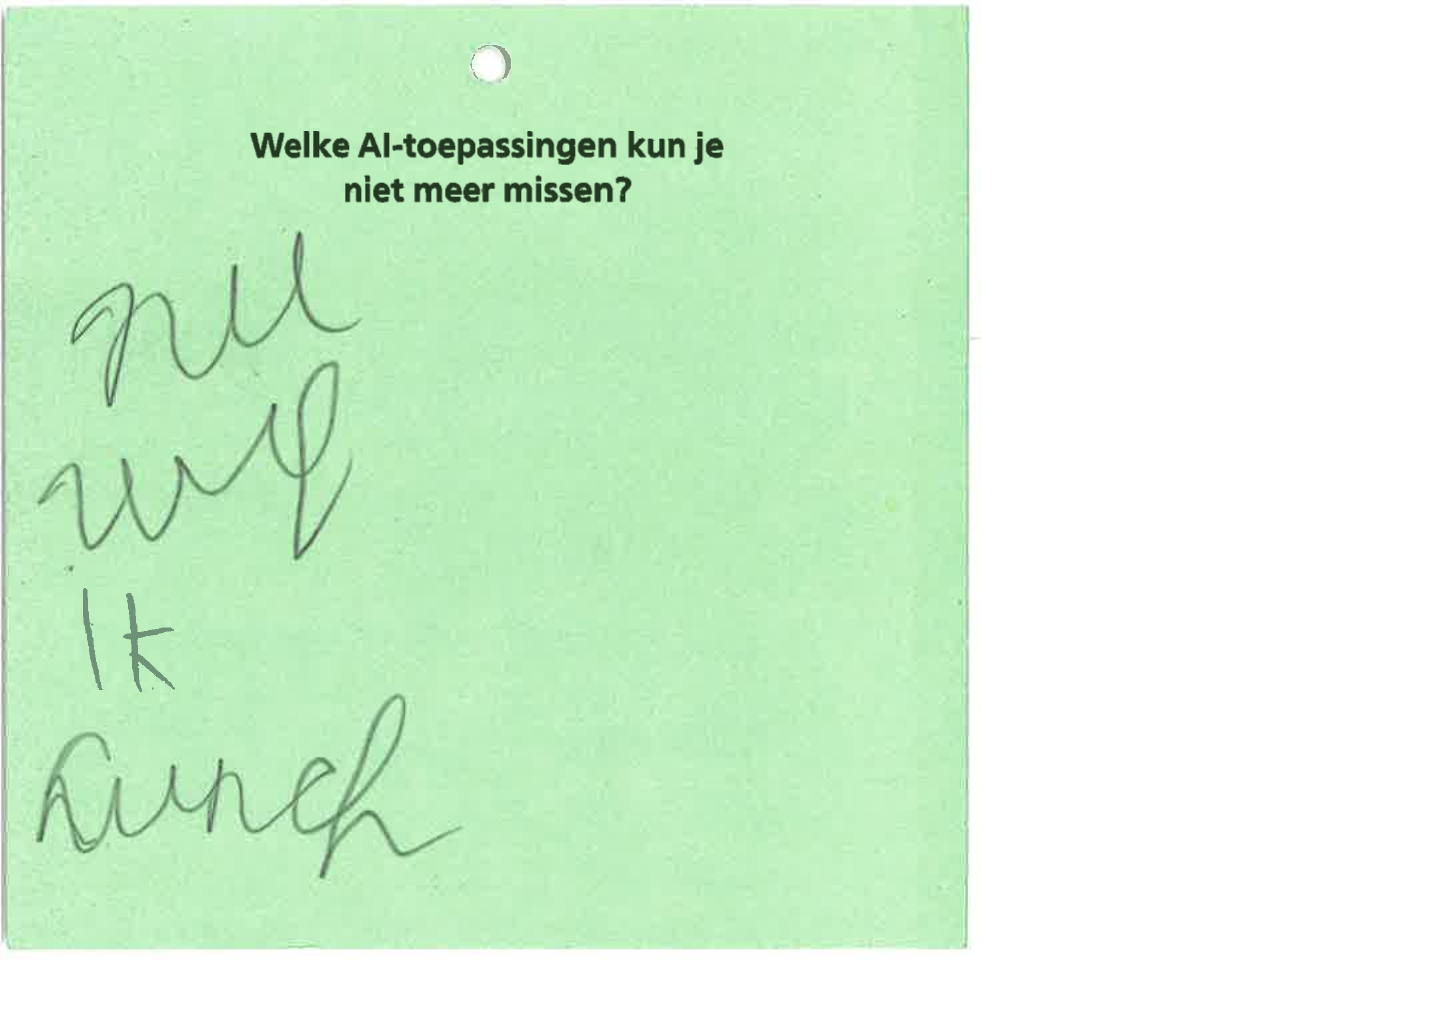 Welke AI-toepassingen kun je
niet meer missen?
nu
wil
Ik
Lunch